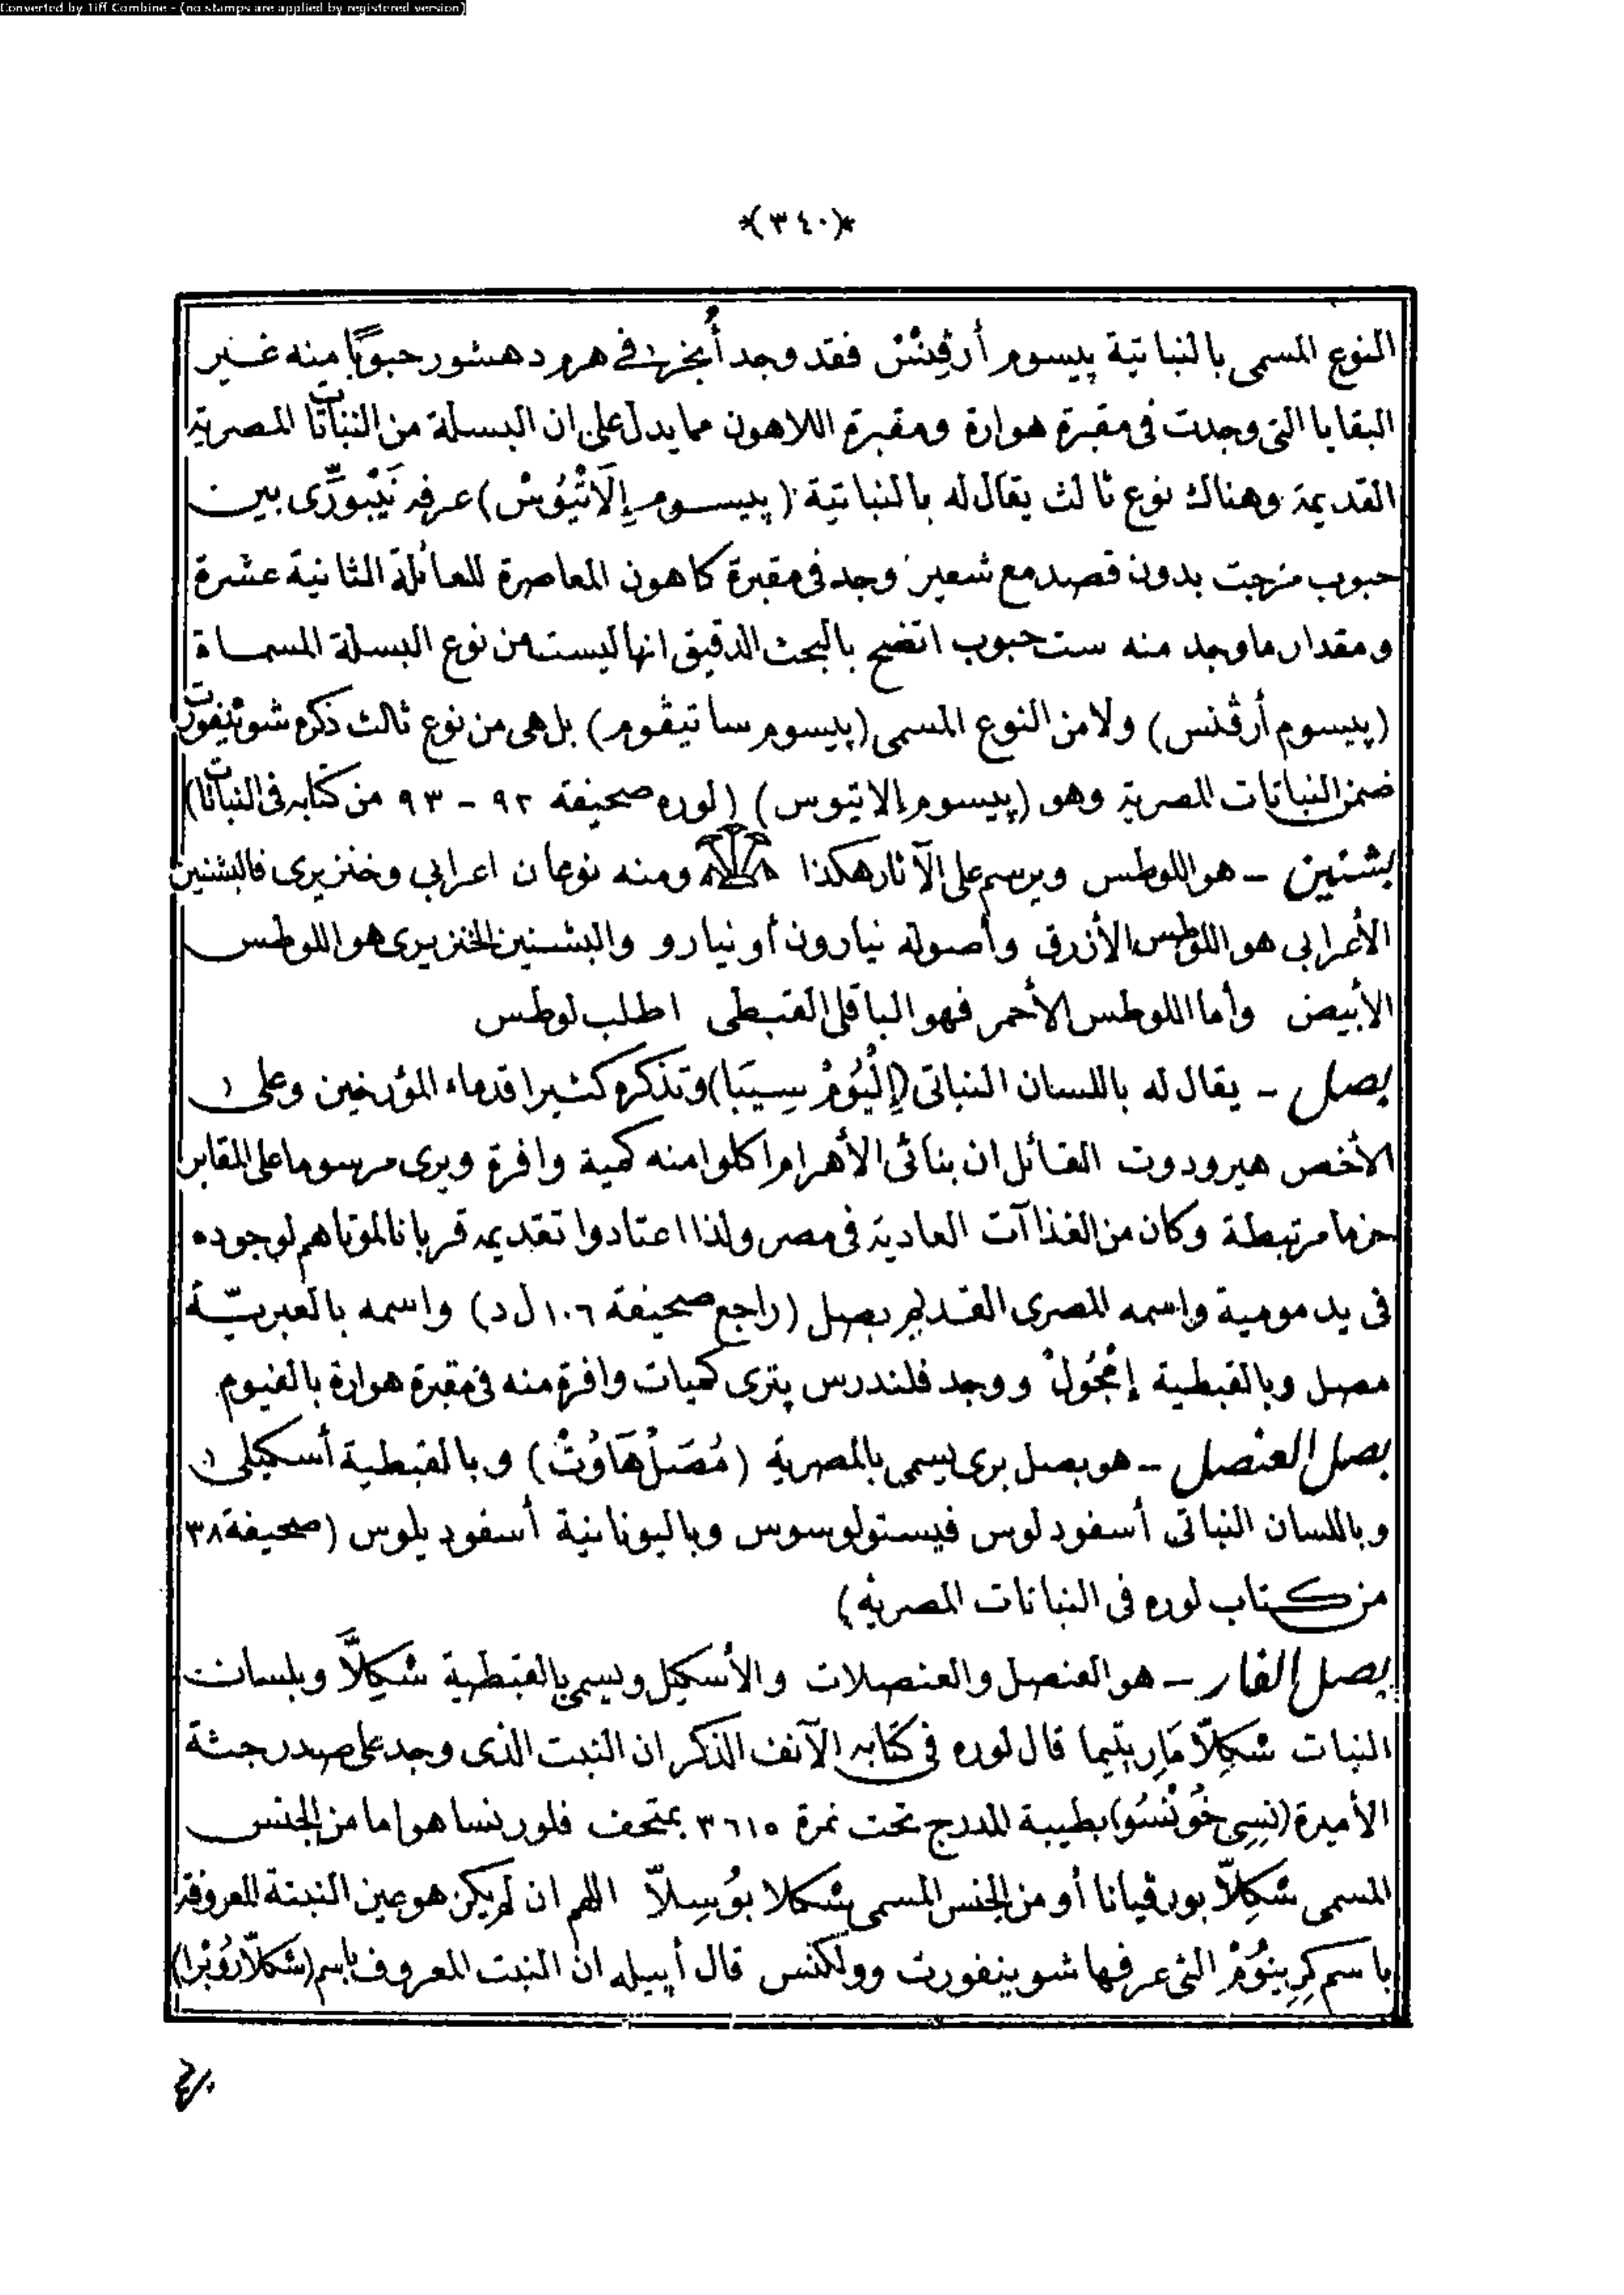 Converted by Tiff Combine - (no stamps are applied by registered version)
*(٣٤٠)*
النوع المسمى بالنباتية پيسوم أرڤنشْ فقد وجد أُنجرْ فى هرم دهشور حبوبًا منه غير
البقايا التى وجدت فى مقبرة هوارة ومقبرة اللاهون مما يدل على ان البسلة من النباتات المصرية
القديمة وهناك نوع ثالث يقال له بالنباتية (پيسوم إِلَاتْيُوسْ) عرفه نَيْبُورِّى بين
حبوب مزجت بدون قصد مع شعير وجد فى مقبرة كاهون المعاصرة للعائلة الثانية عشرة
ومقدار ما وجد منه ست حبوب اتضح بالبحث الدقيق انها ليست من نوع البسلة المسماة
(پيسوم أرڤنس) ولا من النوع المسمى (پيسوم ساتيڤوم) بل هى من نوع ثالث ذكره شوينفورت
ضمن النباتات المصرية وهو (پيسوم إلاتيوس) (لوره صحيفة ٩٢ - ٩٣ من كتابه فى النباتات)
بشنين - هو اللوطس ويرسم على الآثار هكذا ومنه نوعان اعرابي وخنزيرى فالبشنين
الأعرابي هو اللوطس الأزرق وأصوله نيارون أو نيارو والبشنين الخنزيرى هو اللوطس
الأبيض وأما اللوطس الأحمر فهو الباقلى القبطى اطلب لوطس
بصل - يقال له باللسان النباتى (إِلْيُومْ سِيبَا) وتذكره كثيرا قدماء المؤرخين وعلى
الأخص هيرودوت القائل ان بنائى الأهرام اكلوا منه كمية وافرة ويرى مرسوما على المقابر
حزما مرتبطة وكان من الغذاآت العادية فى مصر ولذا اعتادوا تقديمه قربانا لموتاهم لوجوده
فى يد مومية واسمه المصرى القديم بصل (راجع صحيفة ١٠٦ ل د) واسمه بالعبريّة
مصل وبالقبطية إمْجُولْ ووجد فلندرس پترى كميات وافرة منه فى مقبرة هوارة بالفيوم
بصل العنصل - هو بصل برى يسمى بالمصرية (مُصَلْ هَاوُتْ) وبالقبطية أسكيلى
وباللسان النباتى أسفودلوس فيستولوسوس وباليونانية أسفوديلوس (صحيفة ٣٨
من كتاب لوره فى النباتات المصرية)
بصل الفار - هو العنصل والعنصلات والأسكيل ويسمى بالقبطية شكِلاَّ وبلسان
النبات شكِلاّ مَارِيتيما قال لوره فى كتابه الآنف الذكر ان النبت الذى وجد على صدر جثة
الأميرة (نسِى خُونْسُو) بطيبة المدرج تحت نمرة ٣٦١٥ بمتحف فلورنسا هو إما من الجنس
المسمى شكِلاّ بورڤيانا أو من الجنس المسمى شكلا بُوسِلاّ اللهم ان لم يكن هو عين النبتة المعروفة
باسم كرِينُومْ التى عرفها شوينفورت وولكنس قال أپيله ان النبت المعروف باسم (شكلاّ رُوبْرا)